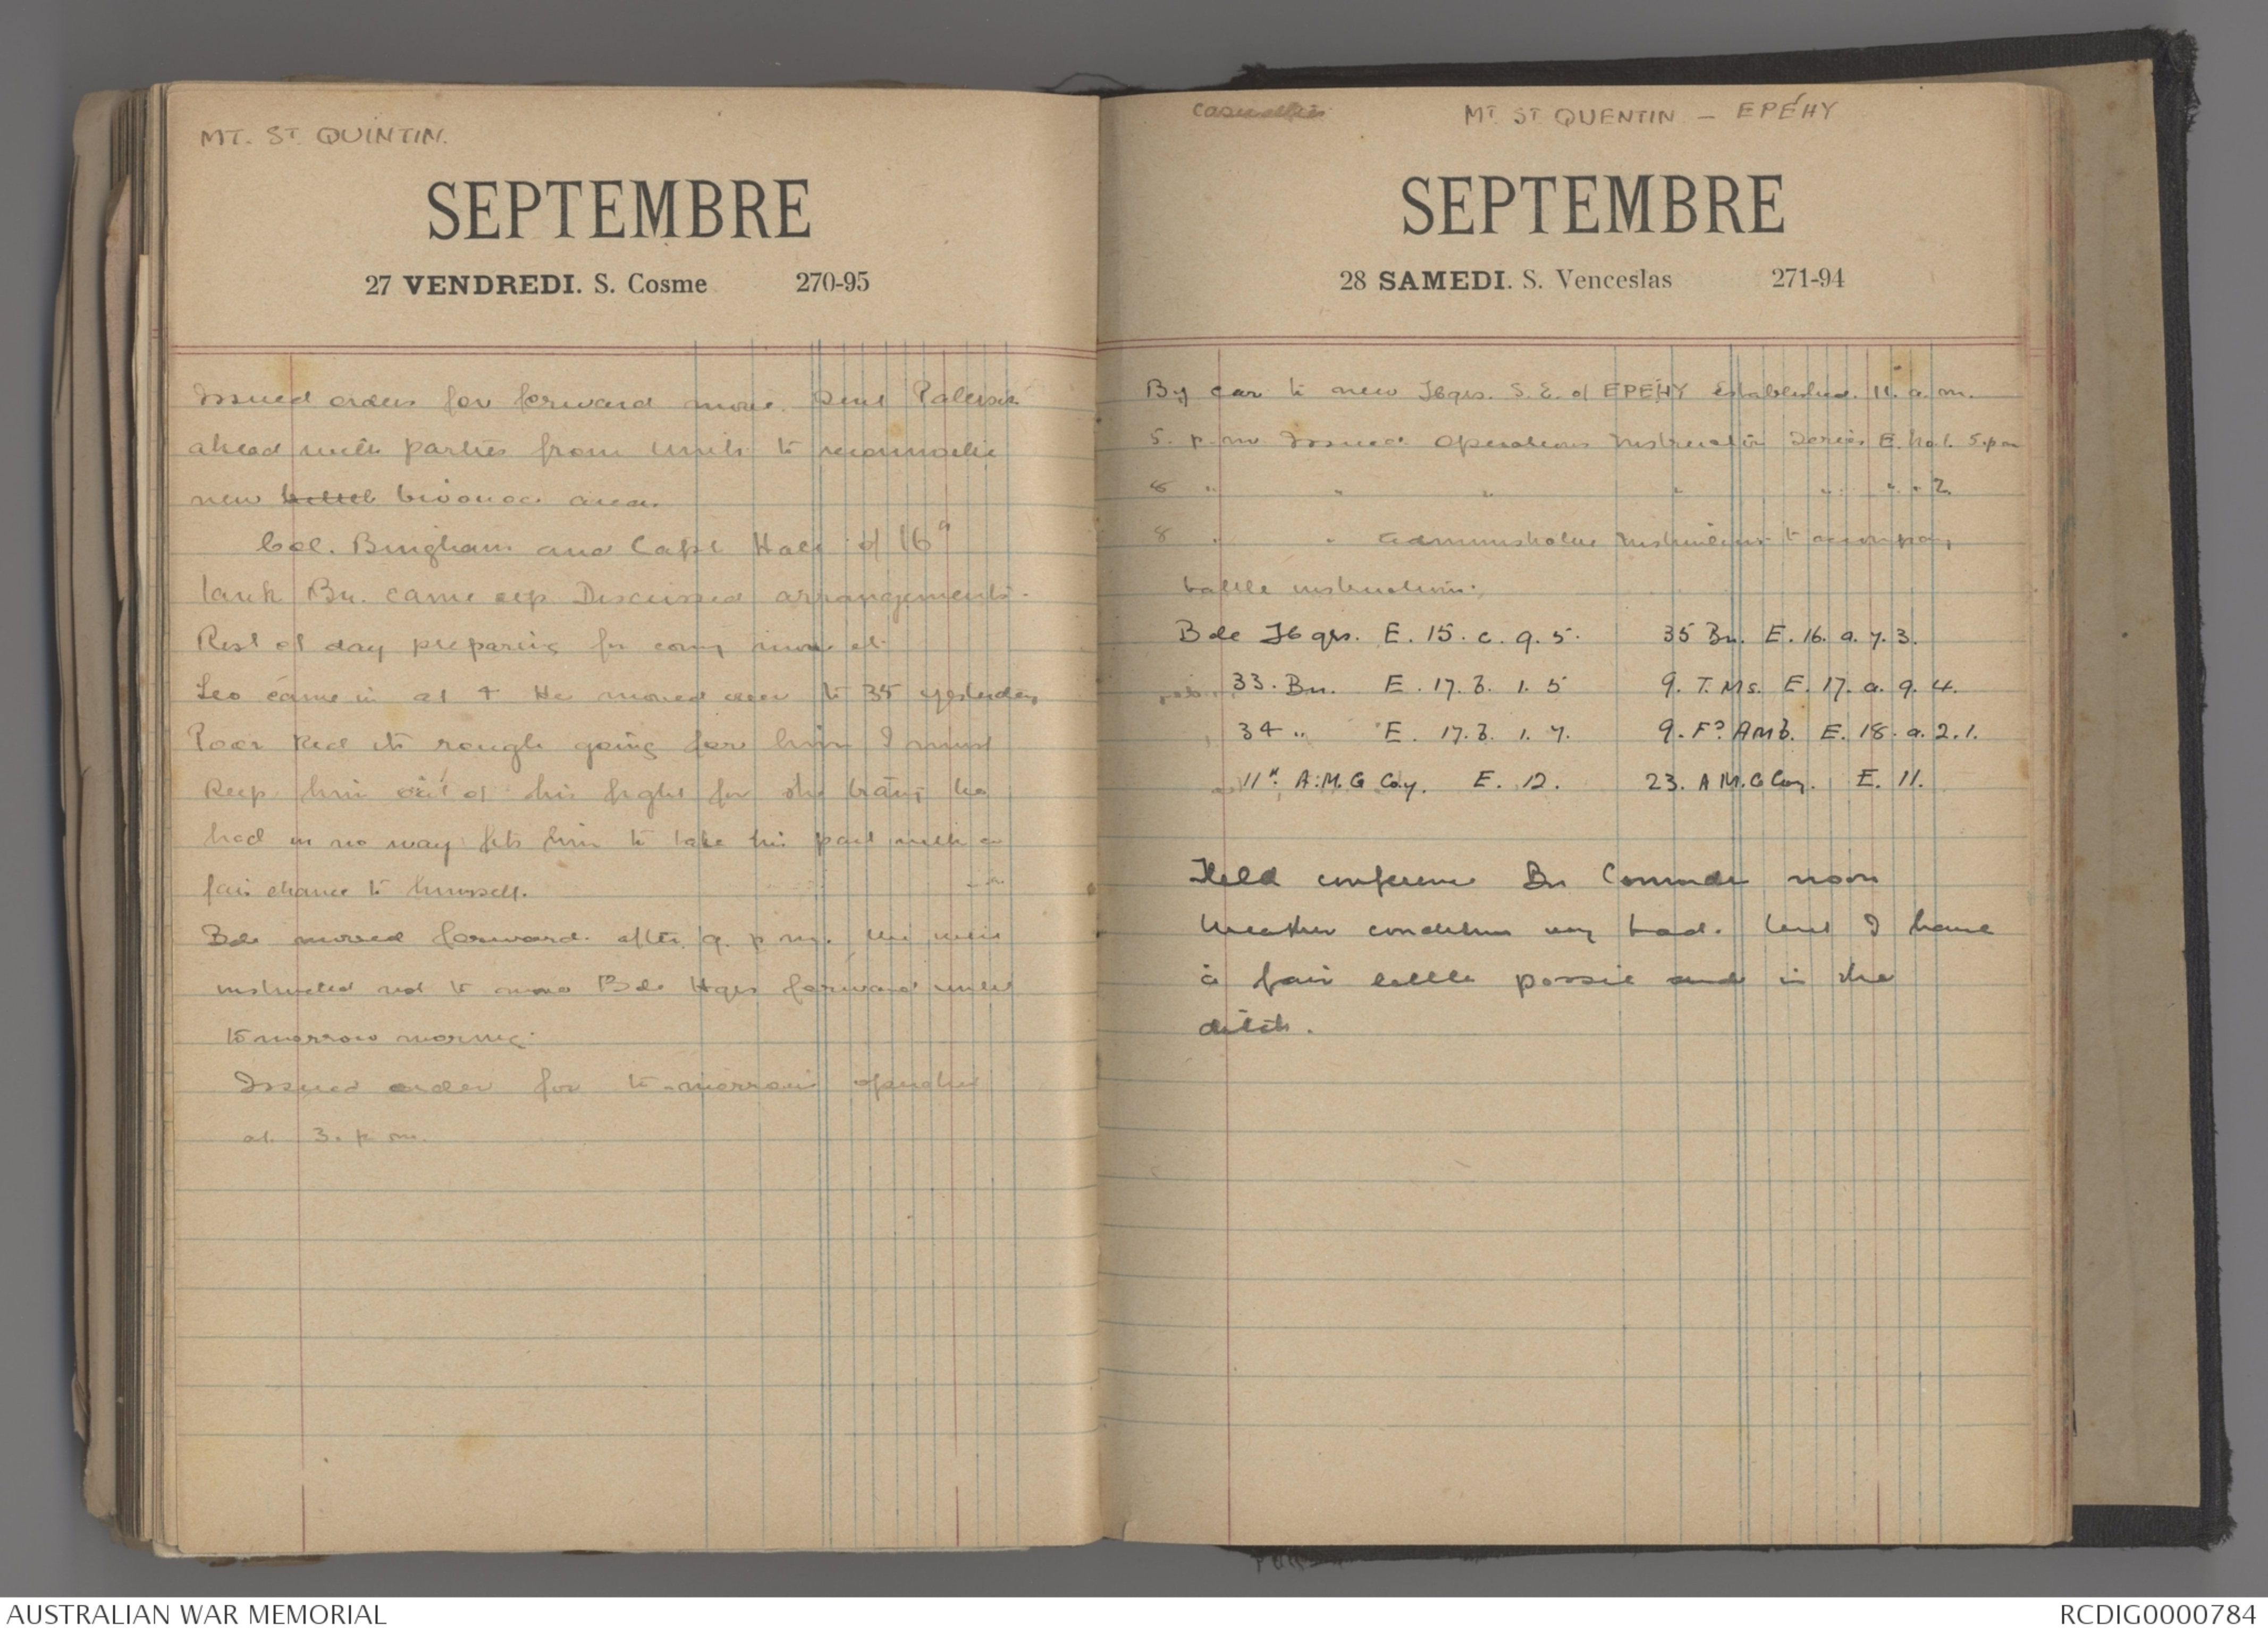 MT. ST. QUINTIN.
SEPTEMBRE
27 VENDREDI. S. Cosme 270-95
Issued orders for forward move. Sent
ahead with parties from Units to reconnoitre
new billet bivouac area.
Col. Bingham and Capt Hall of 16th
Tank Bn. came up Discussed arrangements.
Rest of day preparing for coming move etc
Leo came in at 4 He moved over to 35 yesterday
Poor kid its rough going for him I must
keep him out of this fight for the he
had in no way fits him to take his part with a
fair chance to himself.
Bde moved forward. after 9. p m. were
instructed not to move Bde Hqrs forward until
tomorrow morning.
Issued order for to-morrows operation
at 3. p m.
Casualties MT ST QUENTIN – EPÉHY
SEPTEMBRE
28 SAMEDI. S. Venceslas 271-94
By car to new Hqrs. S. E. of EPEHY established. 11. a. m.
5. p. m Issued Operations Instruction Series E. No 1. 5.pm
8 " " " " " " " 2
8 " " Administrative Instructions to accompany
battle instructions.
Bde Hqrs. E. 15. c. 9. 5. 35 Bn. E. 16. a. 7. 3.
33. Bn. E. 17. b. 1. 5 9. T. Ms. E. 17. a. 9. 4.
34 " E. 17. b. 1. 7. 9. Fd Amb. E. 18. a. 2. 1.
11th A.M.G Coy. E. 12. 23. A M.G Coy. E. 11.
Held conference Bn Commdr noon
Weather condition very bad. but I have
a fair little possie and in the
ditch.
AUSTRALIAN WAR MEMORIAL
RCDIG0000784